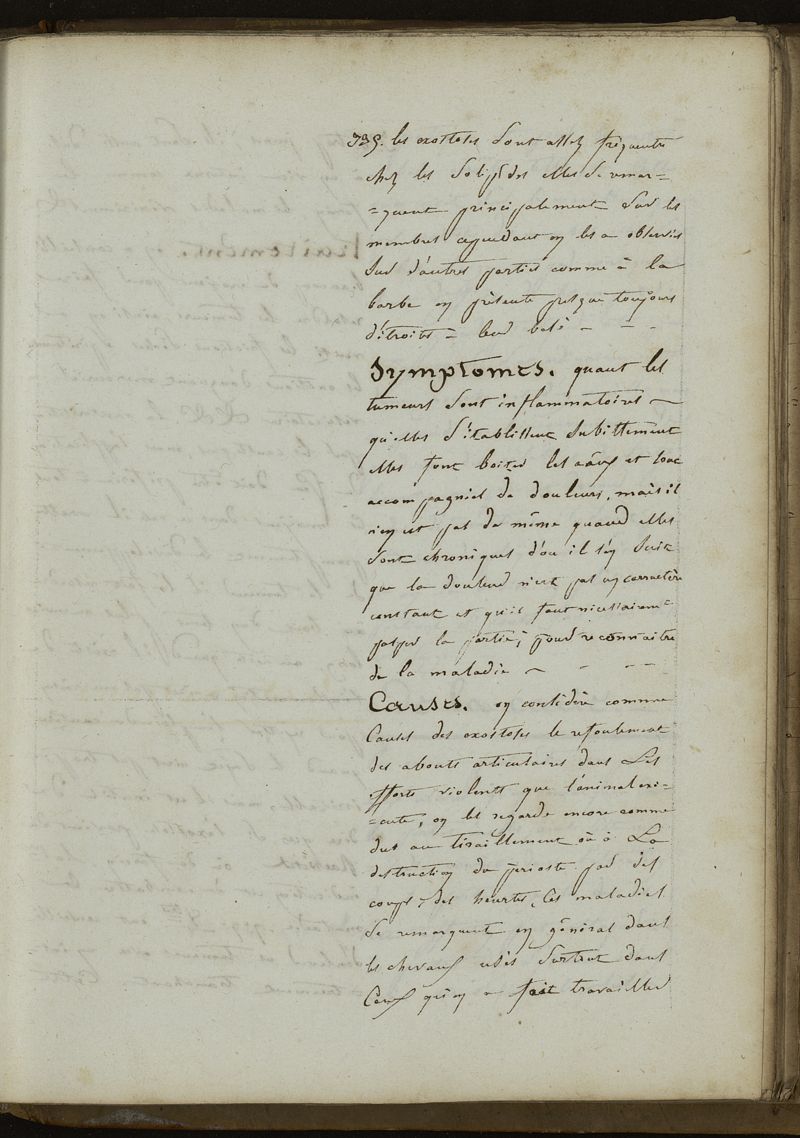 339. les exostoses sont assez fréquentes
chez les solipèdes elles se remar=
=quent principalement sur les
membres cependant on les a observés
sur d'autres parties comme à la
barbe on présente presque toujours
d'étroits = leur base - - -
Symptomes. quant les
tumeurs sont inflammatoires ~
qu'elles s'établissent subittement
elles font boiter les
accompagnies de douleurs, mais il
n'en est pas de même quand elles
sont chroniques d'ou il s'en suit
que la douleur n'est pas un carractère
constant et qu'il faut nécessairemt
palper la partie; pour reconnaitre
de la maladie ~ - - -
Causes. on considère comme
Causes des exostoses le refoulement
des abouts articulaires dans les
efforts violents que l'animal exé=
=cute, on les regarde encore comme
dus au tiraillement où à la
destruction du périoste par des
coups, des heurtes, Ces maladies
se remarquent en général dans
les chevaux usés surtout dans
Ceux qu'on a fait travailler